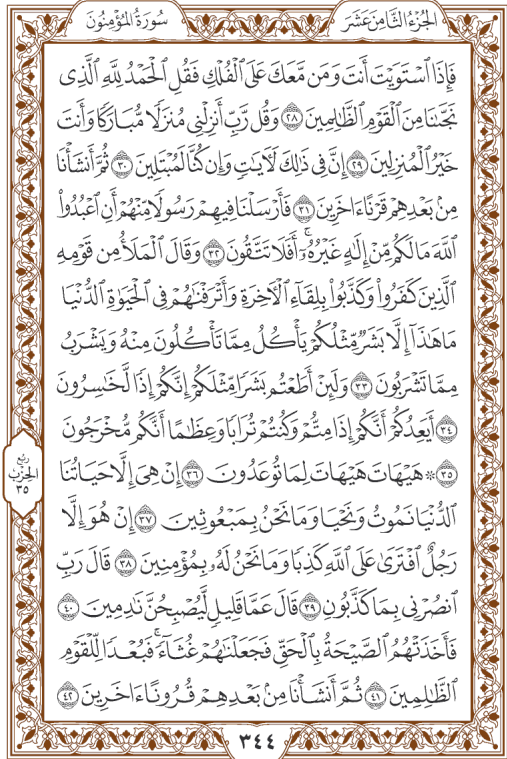 الجزء الثامن عشر
سورة المؤمنون
فَإِذَا ٱسۡتَوَيۡتَ أَنتَ وَمَن مَّعَكَ عَلَى ٱلۡفُلۡكِ فَقُلِ ٱلۡحَمۡدُ لِلَّهِ ٱلَّذِي
نَجَّىٰنَا مِنَ ٱلۡقَوۡمِ ٱلظَّٰلِمِينَ ٢٨ وَقُل رَّبِّ أَنزِلۡنِي مُنزَلٗا مُّبَارَكٗا وَأَنتَ
خَيۡرُ ٱلۡمُنزِلِينَ ٢٩ إِنَّ فِي ذَٰلِكَ لَأٓيَٰتٖ وَإِن كُنَّا لَمُبۡتَلِينَ ٣٠ ثُمَّ أَنشَأۡنَا
مِنۢ بَعۡدِهِمۡ قَرۡنًا ءَاخَرِينَ ٣١ فَأَرۡسَلۡنَا فِيهِمۡ رَسُولٗا مِّنۡهُمۡ أَنِ ٱعۡبُدُواْ
ٱللَّهَ مَا لَكُم مِّنۡ إِلَٰهٍ غَيۡرُهُۥٓۚ أَفَلَا تَتَّقُونَ ٣٢ وَقَالَ ٱلۡمَلَأُ مِن قَوۡمِهِ
ٱلَّذِينَ كَفَرُواْ وَكَذَّبُواْ بِلِقَآءِ ٱلۡأٓخِرَةِ وَأَتۡرَفۡنَٰهُمۡ فِي ٱلۡحَيَوٰةِ ٱلدُّنۡيَا
مَا هَٰذَآ إِلَّا بَشَرٞ مِّثۡلُكُمۡ يَأۡكُلُ مِمَّا تَأۡكُلُونَ مِنۡهُ وَيَشۡرَبُ
مِمَّا تَشۡرَبُونَ ٣٣ وَلَئِنۡ أَطَعۡتُم بَشَرٗا مِّثۡلَكُمۡ إِنَّكُمۡ إِذٗا لَّخَٰسِرُونَ
٣٤ أَيَعِدُكُمۡ أَنَّكُمۡ إِذَا مِتُّمۡ وَكُنتُمۡ تُرَابٗا وَعِظَٰمًا أَنَّكُم مُّخۡرَجُونَ
٣٥ ۞ هَيۡهَاتَ هَيۡهَاتَ لِمَا تُوعَدُونَ ٣٦ إِنۡ هِيَ إِلَّا حَيَاتُنَا
ٱلدُّنۡيَا نَمُوتُ وَنَحۡيَا وَمَا نَحۡنُ بِمَبۡعُوثِينَ ٣٧ إِنۡ هُوَ إِلَّا
رَجُلٌ ٱفۡتَرَىٰ عَلَى ٱللَّهِ كَذِبٗا وَمَا نَحۡنُ لَهُۥ بِمُؤۡمِنِينَ ٣٨ قَالَ رَبِّ
ٱنصُرۡنِي بِمَا كَذَّبُونِ ٣٩ قَالَ عَمَّا قَلِيلٖ لَّيُصۡبِحُنَّ نَٰدِمِينَ ٤٠
فَأَخَذَتۡهُمُ ٱلصَّيۡحَةُ بِٱلۡحَقِّ فَجَعَلۡنَٰهُمۡ غُثَآءٗۚ فَبُعۡدٗا لِّلۡقَوۡمِ
ٱلظَّٰلِمِينَ ٤١ ثُمَّ أَنشَأۡنَا مِنۢ بَعۡدِهِمۡ قُرُونًا ءَاخَرِينَ ٤٢
ربع
الحزب
٣٥
٣٤٤